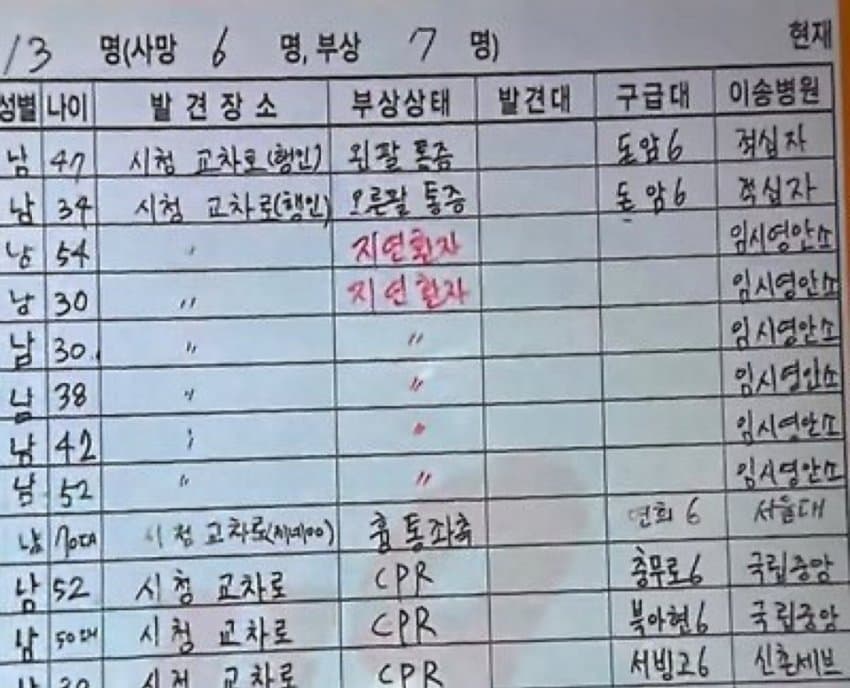 13 명(사망 6 명, 부상 7 명) 현재
성별 나이 발견장소 부상상태 발견대 구급대 이송병원
남 47 시청 교차로(행인) 왼팔 통증 돈암6 적십자
남 34 시청 교차로(행인) 오른팔 통증 돈암6 적십자
남 54 〃 지연환자 임시영안소
남 30 〃 지연환자 임시영안소
남 30 〃 〃 임시영안소
남 38 〃 〃 임시영안소
남 42 〃 〃 임시영안소
남 52 〃 〃 임시영안소
남 70대 시청 교차로 흉통좌측 연희6 서울대
남 52 시청 교차로 CPR 충무로6 국립중앙
남 50대 시청 교차로 CPR 북아현6 국립중앙
30 시청 교차로 CPR 서빙고6 신촌세브